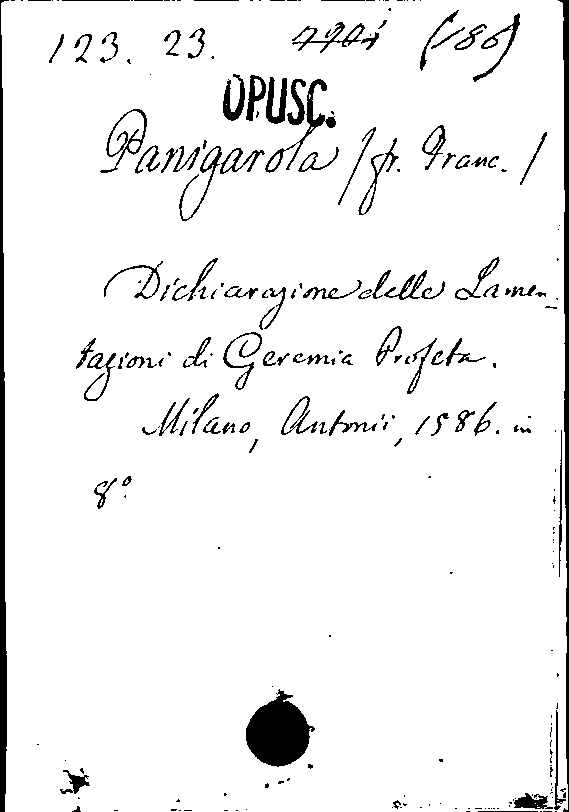 123. 23. 4904 (186)
OPUSC.
Panigarola / fr. Franc. /
Dichiarazione delle Lamen_
tazioni di Geremia Profeta.
Milano, Antonii, 1586. in
8º